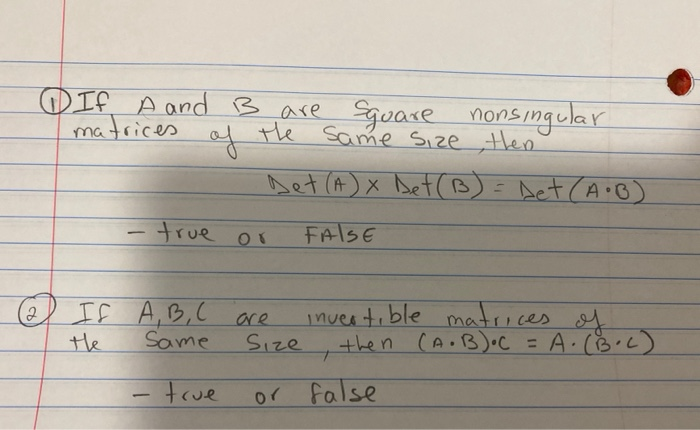 ① If A and B are Square nonsingular
matrices of the same size, then
Det(A) x Det(B) = Det(A·B)
- true or FAlSE
② If A, B, C are invertible matrices of
the Same Size, then (A·B)·C = A·(B·C)
- true or false